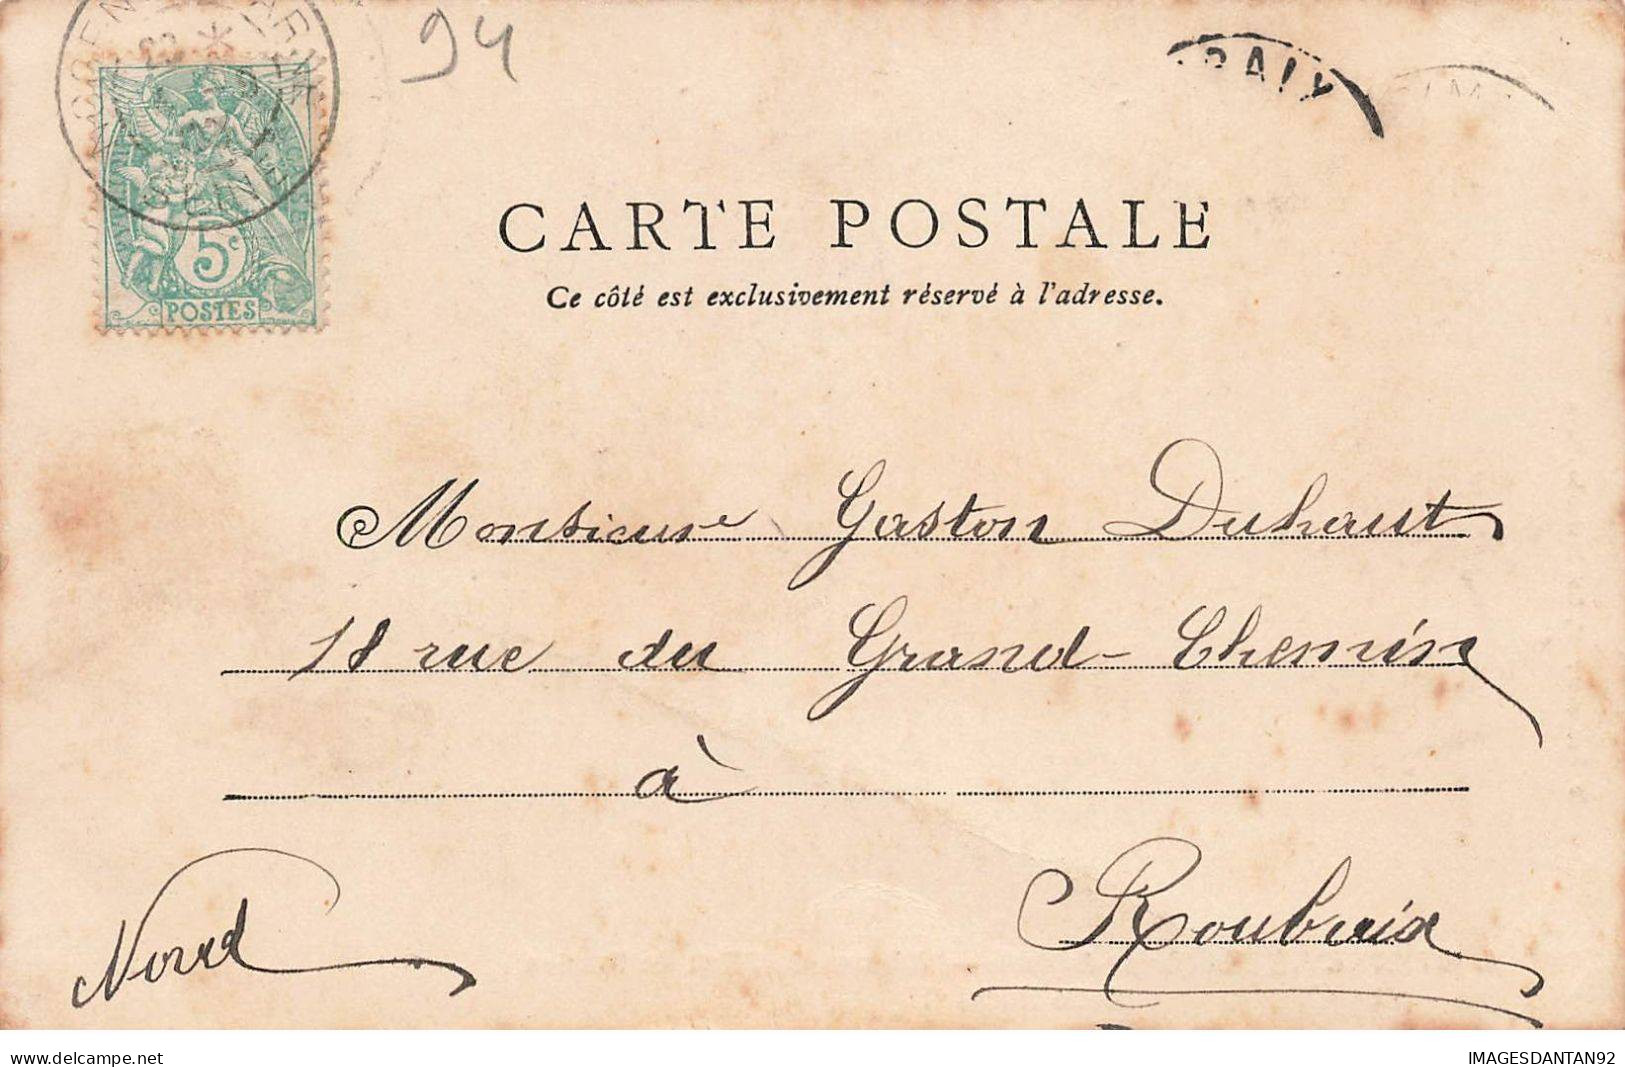 94
5c
POSTES
CARTE POSTALE
Ce côté est exclusivement réservé à l'adresse.
Monsieur Gaston Duhaut
18 rue du Grand-Chemin
à
Roubaix
Nord
delcampe.net
IMAGESDANTAN92